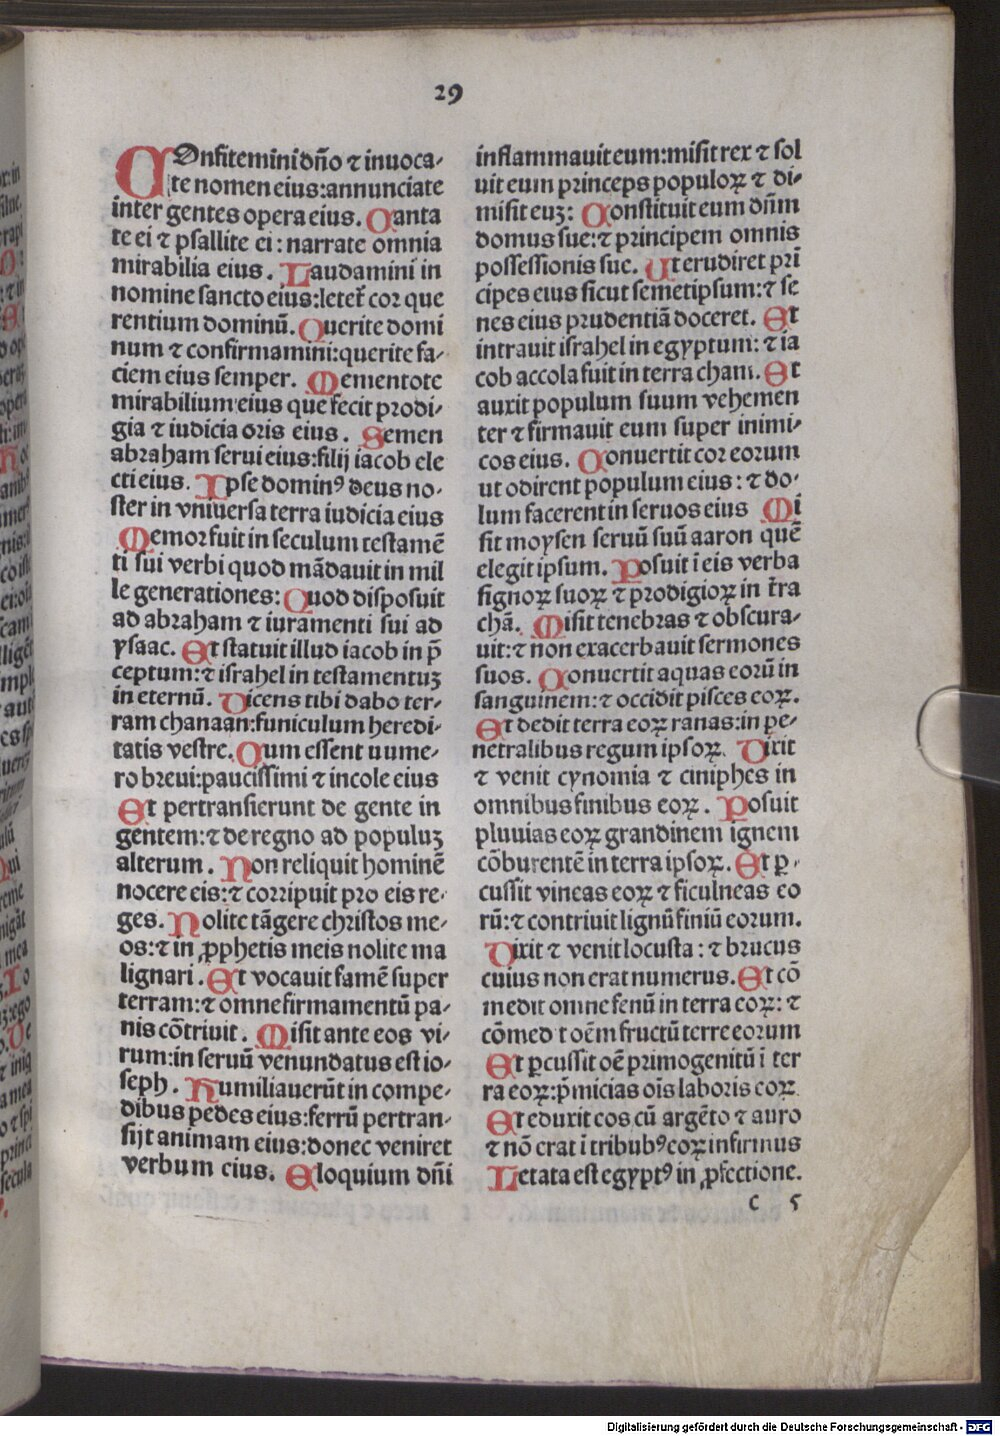 29
COnfitemini dño ⁊ inuoca-
te nomen eius:annunciate
inter gentes opera eius. Canta
te ei ⁊ psallite ei : narrate omnia
mirabilia eius. Laudamini in
nomine sancto eius:letet̃ cor que
rentium dominũ. Querite domi
num ⁊ confirmamini:querite fa-
ciem eius semper. Mementote
mirabilium eius que fecit prodi-
gia ⁊ iudicia oris eius. Semen
abraham serui eius:filij iacob ele
cti eius. Ipse dominꝰ deus no-
ster in vniuersa terra iudicia eius
Memor fuit in seculum testamē
ti sui verbi quod mādauit in mil
le generationes: Quod disposuit
ad abraham ⁊ iuramenti sui ad
ysaac. Et statuit illud iacob in p̄
ceptum:⁊ israhel in testamentuꝫ
in eternũ. Dicens tibi dabo ter-
ram chanaan:funiculum heredi-
tatis vestre. Cum essent uume-
ro breui:paucissimi ⁊ incole eius
Et pertransierunt de gente in
gentem:⁊ de regno ad populuꝫ
alterum. Non reliquit hominē
nocere eis:⁊ corripuit pro eis re-
ges. Nolite tāgere christos me-
os:⁊ in ꝓphetis meis nolite ma
lignari. Et vocauit famē super
terram:⁊ omne firmamentũ pa-
nis cōtriuit. Misit ante eos vi-
rum:in seruũ venundatus est io-
seph. Humiliauerũt in compe-
dibus pedes eius:ferrũ pertran-
sijt animam eius:donec veniret
verbum eius. Eloquium dñi
inflammauit eum:misit rex ⁊ sol
uit eum princeps populoꝝ ⁊ di-
misit euꝫ: Constituit eum dñm
domus sue:⁊ principem omnis
possessionis sue. Ut erudiret pri
cipes eius sicut semetipsum:⁊ se
nes eius prudentiā doceret. Et
intrauit israhel in egyptum:⁊ ia
cob accola fuit in terra cham. Et
auxit populum suum vehemen
ter ⁊ firmauit eum super inimi-
cos eius. Conuertit cor eorum
ut odirent populum eius:⁊ do-
lum facerent in seruos eius Mi
sit moysen seruũ suũ aaron quē
elegit ipsum. Posuit ī eis verba
signoꝝ suoꝝ ⁊ prodigioꝝ in t̃ra
chā. Misit tenebras ⁊ obscura-
uit:⁊ non exacerbauit sermones
suos. Conuertit aquas eorũ in
sanguinem:⁊ occidit pisces eoꝝ.
Et dedit terra eoꝝ ranas:in pe-
netralibus regum ipsoꝝ. Dixit
⁊ venit cynomia ⁊ ciniphes in
omnibus finibus eoꝝ. Posuit
pluuias eoꝝ grandinem ignem
cōburentē in terra ipsoꝝ. Et ꝑ-
cussit vineas eoꝝ ⁊ ficulneas eo
rũ:⁊ contriuit lignũ finiũ eorum.
Dixit ⁊ venit locusta:⁊ brucus
cuius non erat numerus. Et cō
medit omne fenũ in terra eoꝝ:⁊
cōmed t oēm fructũ terre eorum
Et ꝑcussit oē primogenitũ ī ter
ra eoꝝ:p̄micias oīs laboris eoꝝ
Et eduxit eos cũ argēto ⁊ auro
⁊ nō erat ī tribubꝰ eoꝝ infirmus
Letata est egyptꝰ in ꝓfectione.
c 5
Digitalisierung gefördert durch die Deutsche Forschungsgemeinschaft - DFG